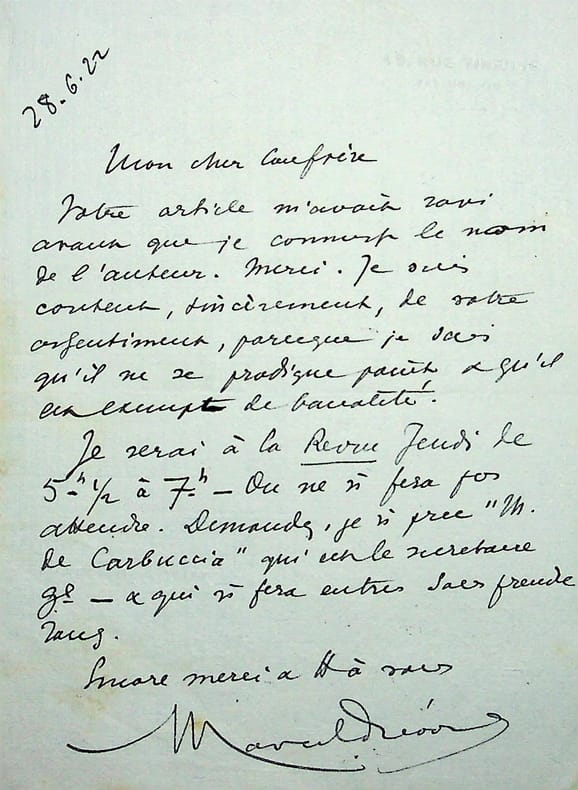 28.6.22
Mon cher Confrère
Votre article m'avait ravi
avant que je connusse le nom
de l'auteur. Merci. Je suis
content, sincèrement, de votre
assentiment, parceque je sais
qu'il ne se prodigue point & qu'il
est exempt de banalité.
Je serai à la Revue Jeudi de
5h 1/2 à 7h — On ne fera pas
attendre. Demandez, je prie "M.
de Carbuccia" qui est le secrétaire
gl — & qui fera entrer sans prendre
rang.
Encore merci & à vous
Marcel Prévost